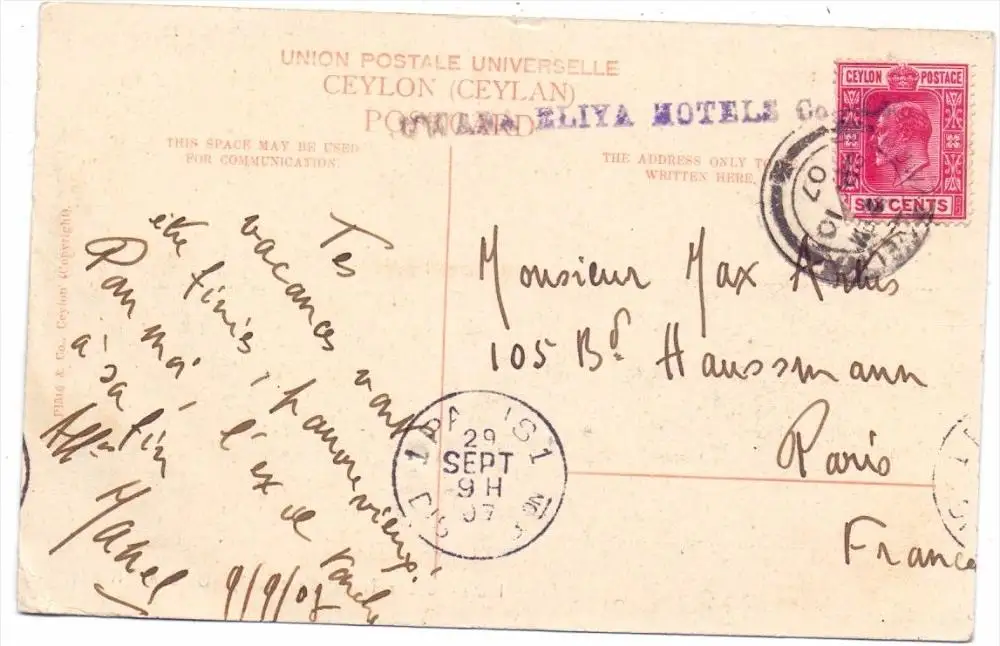 UNION POSTALE UNIVERSELLE
CEYLON (CEYLAN)
POSTCARD
ELIYA HOTELS Co
THIS SPACE MAY BE USED
FOR COMMUNICATION.
THE ADDRESS ONLY TO
WRITTEN HERE.
CEYLON POSTAGE
SIX CENTS
07
10
Plâté & Co., Ceylon (Copyright)
Tes
vacances vont
être finies, pauvre vieux!
Pour moi, l'ex de
à sa fin
Affn
Mabel
9/9/07
Monsieur Max
105 Bd Haussmann
Paris
France
PARIS 1
29
SEPT
9 H
07
DIS